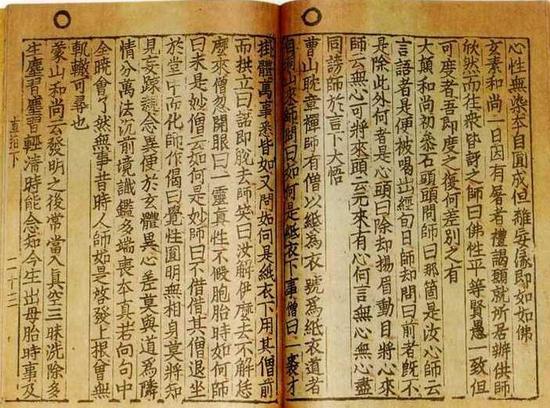 心性無染本自圓成但離妄緣即如如佛
玄素和尚一日因有屠者禮謁頭就所居辦供師
欣然而往衆皆訝之師曰佛性平等賢愚一致但
可度者吾即度之復何差別之有
大顚和尚初叅石頭頭問師曰那箇是汝心師云
言語者是便被喝出經旬日師却問曰前者旣不
是除此外何者是心頭曰除却揚眉動目將心來
師云無心可將來頭云元來有心何言無心無心盡
同謗師於言下大悟
曹山耽章禪師有僧以紙為衣號為紙衣道者
自洞山來師問曰如何是紙衣下事僧曰一裘才
掛體萬事悉皆如又問如何是紙衣下用其僧前
而拱立曰諾即脫去師笑曰汝解伊麽去不解恁
麽來僧忽開眼曰一靈眞性不假胞胎時如何師
曰未是妙僧云如何是妙師曰不借借其僧退坐
於堂中而化師作偈曰覺性圓明無相身莫將知
見妄踈親念異便於玄體異心差莫與道為隣
情分萬法沉前境識鑑多端喪本真若向句中
全曉會了然無事昔時人師如是啓發上根曾無
軌轍可尋也
蒙山和尚云發明之後常當入真空三昧洗除多
生塵習塵習輕清時能念知今生出母胎時事及
直指下 二十三